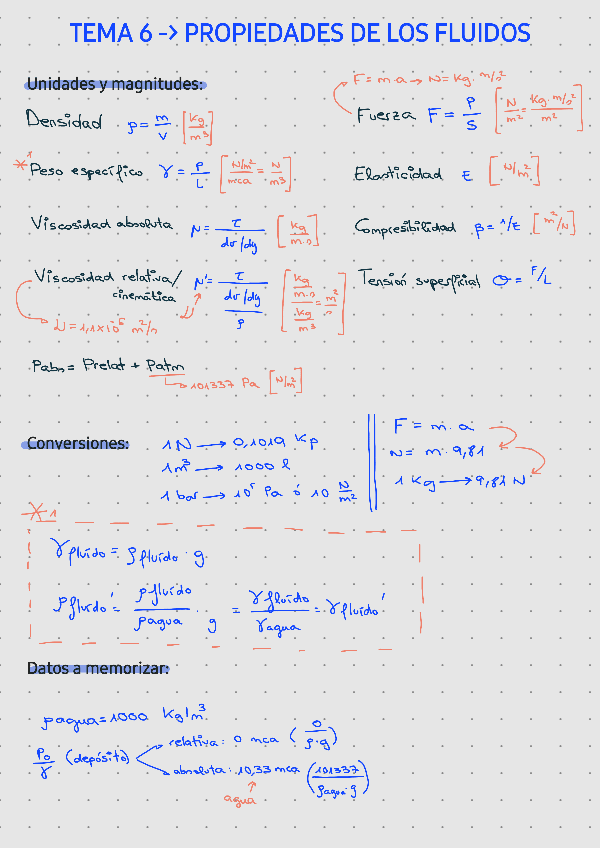 TEMA 6 -> PROPIEDADES DE LOS FLUIDOS
Unidades y magnitudes:
F = m·a → N = Kg·m/s²
Densidad ρ = m/V [Kg/m³]
Fuerza F = P/S [N/m² = Kg·m/s²/m²]
*¹ Peso específico γ = P/L [N/m²/mca = N/m³]
Elasticidad E [N/m²]
Viscosidad absoluta μ = τ/dv/dy [Kg/m·s]
Compresibilidad β = 1/E [m²/N]
Viscosidad relativa/cinemática μ' = τ/dv/dy/ρ [Kg/m·s/Kg/m³ = m²/s]
Tensión superficial σ = F/L
υ = 1,1×10⁻⁶ m²/s
Pabs = Prelat + Patm
101337 Pa [N/m²]
Conversiones:
1 N → 0,1019 Kp
1 m³ → 1000 l
1 bar → 10⁵ Pa ó 10 N/m²
F = m·a
N = m·9,81
1 Kg → 9,81 N
*1
γfluido = ρfluido · g
ρfluido' = ρfluido/ρagua g = γfluido/γagua = γfluido'
Datos a memorizar:
ρagua = 1000 Kg/m³
P₀/γ (depósito)
relativa: 0 mca (0/ρ·g)
absoluta: 10,33 mca (101337/ρagua·g)
agua